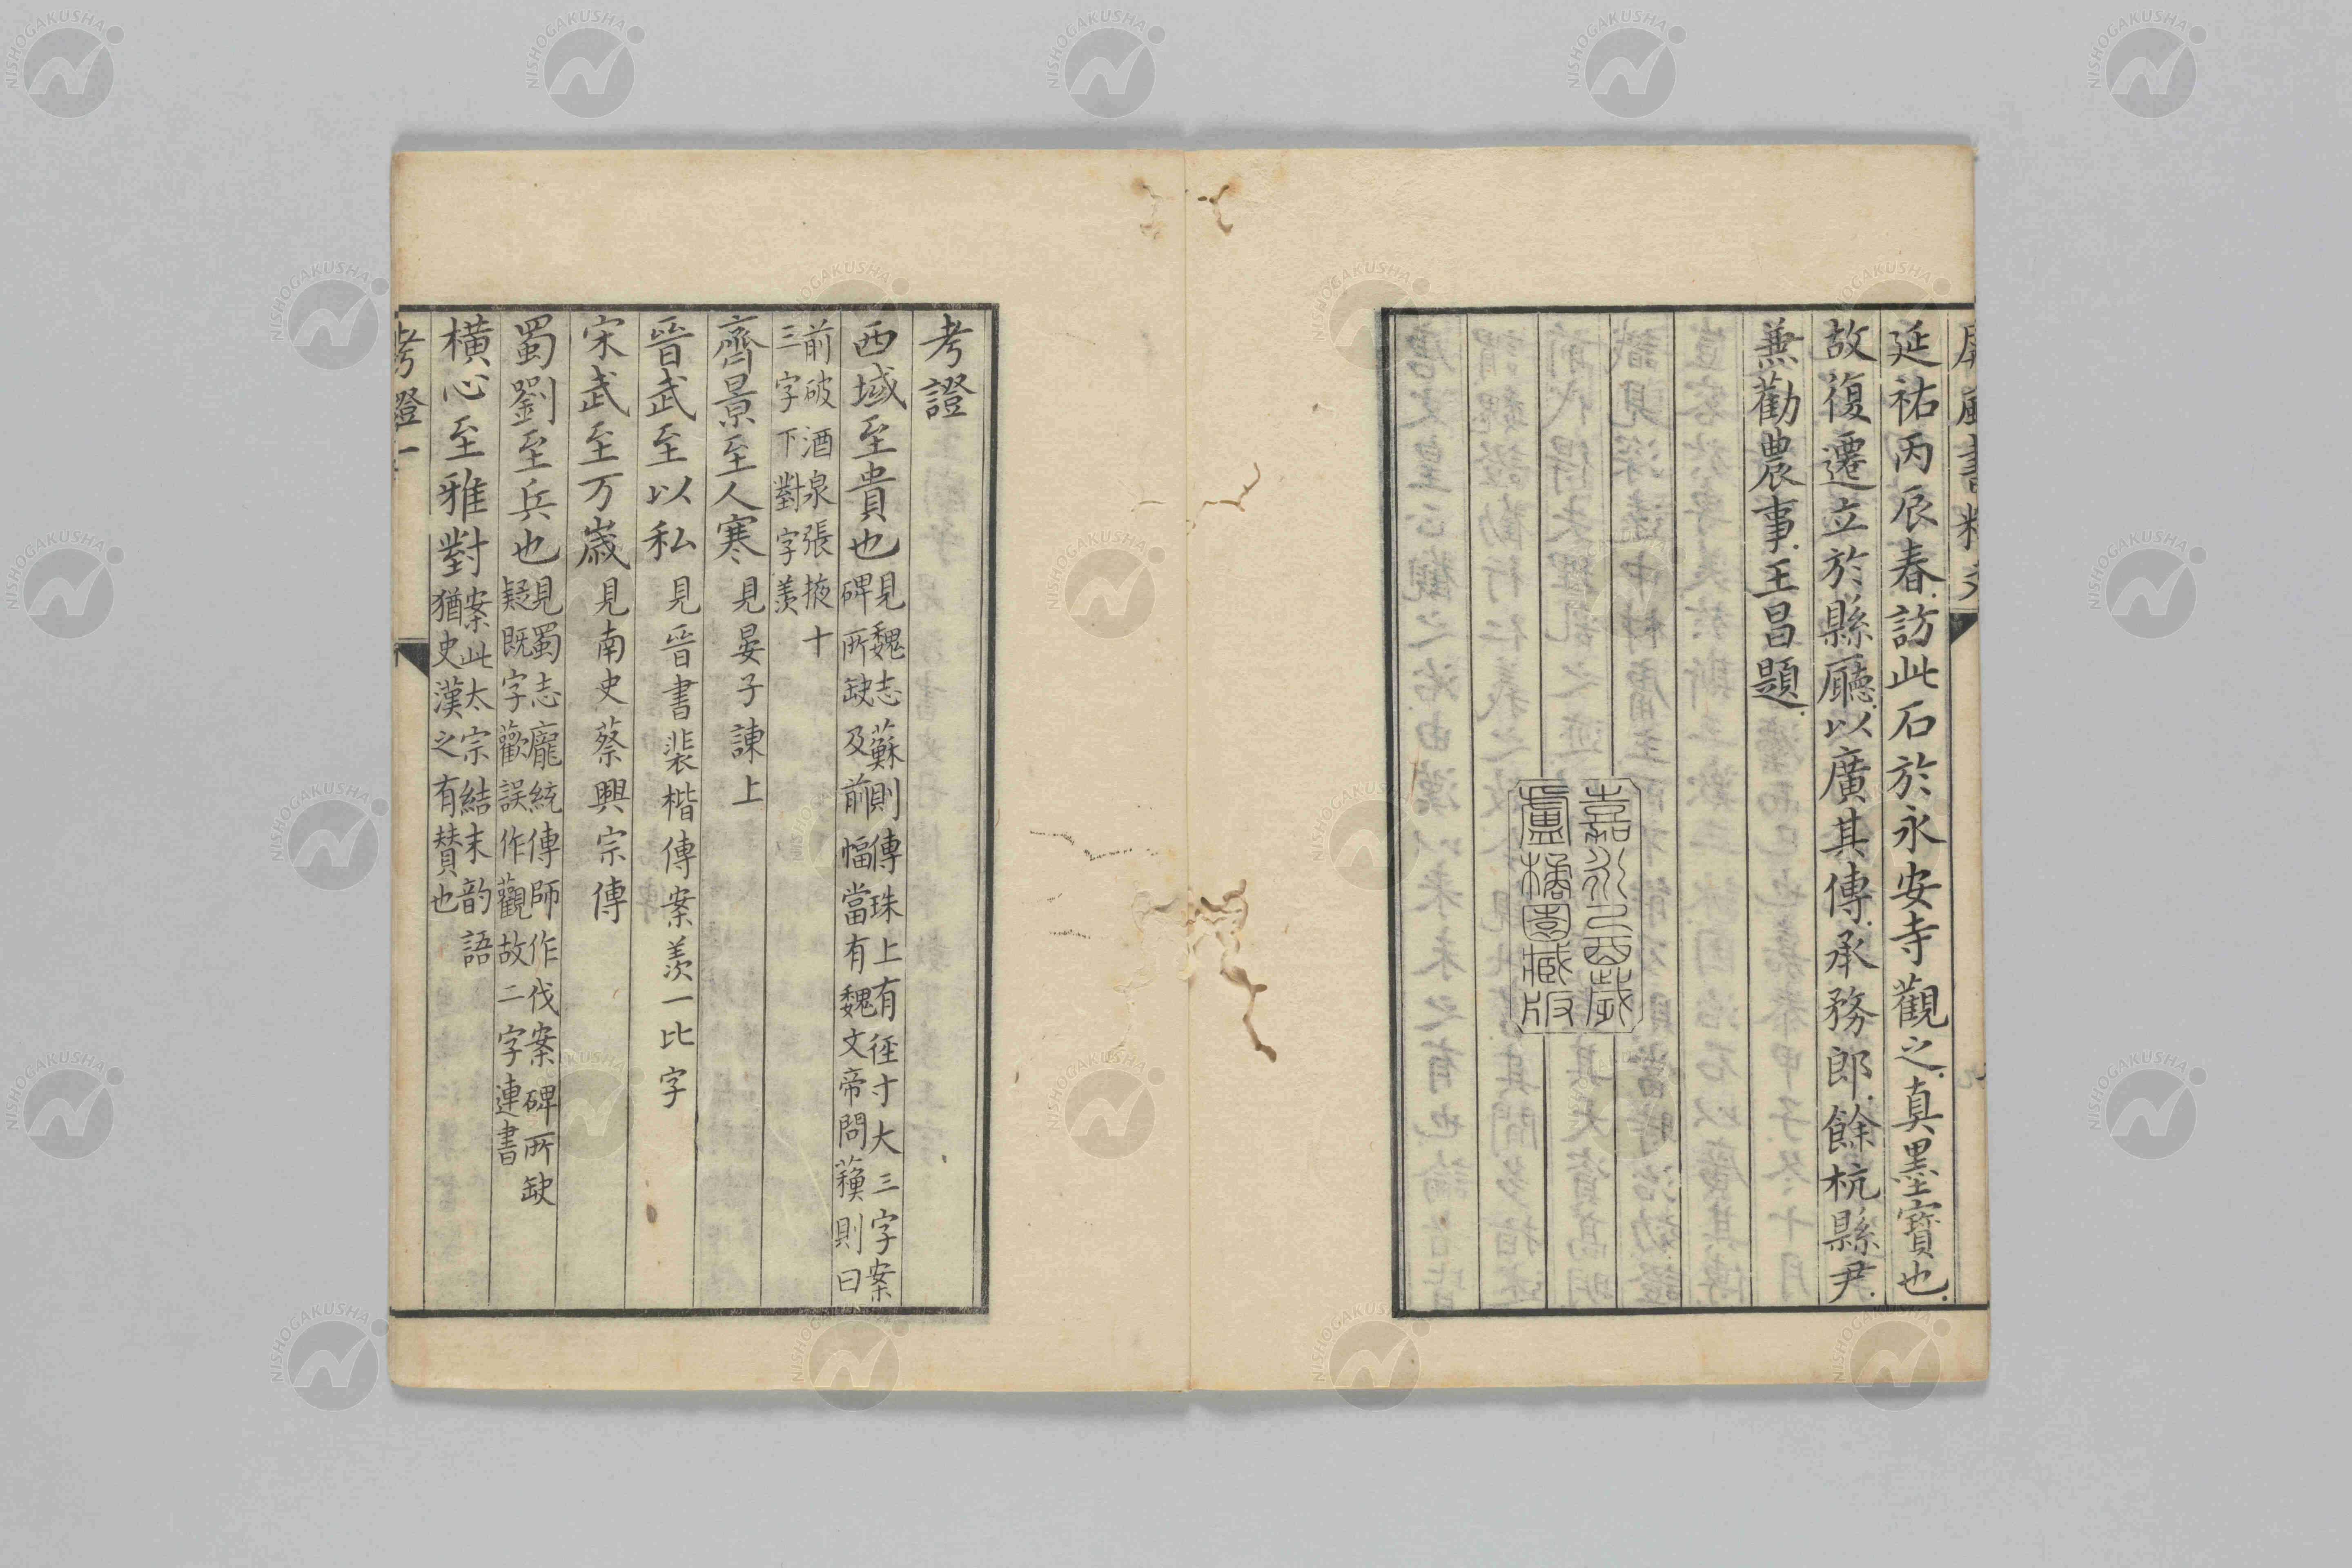 延祐丙辰春訪此石於永安寺觀之真墨寶也
故復遷立於縣廳以廣其傳承務郎餘杭縣尹
兼勸農事王昌題
嘉永乙酉歲
盧橘園藏版
考證
西域至貴也見魏志蘇則傳珠上有徑寸大三字案
碑所缺及前幅當有魏文帝問蘓則曰
前破酒泉張掖十
三字下對字羨
齊景至人寒見晏子諫上
晉武至以私見晉書裴楷傳案羨一比字
宋武至万歳見南史蔡興宗傳
蜀劉至兵也見蜀志龐統傳師作伐案碑所缺
疑既字歡誤作觀故二字連書
橫心至雅對案此太宗結末韵語
猶史漢之有賛也
考證一
NISHOGAKUSHA